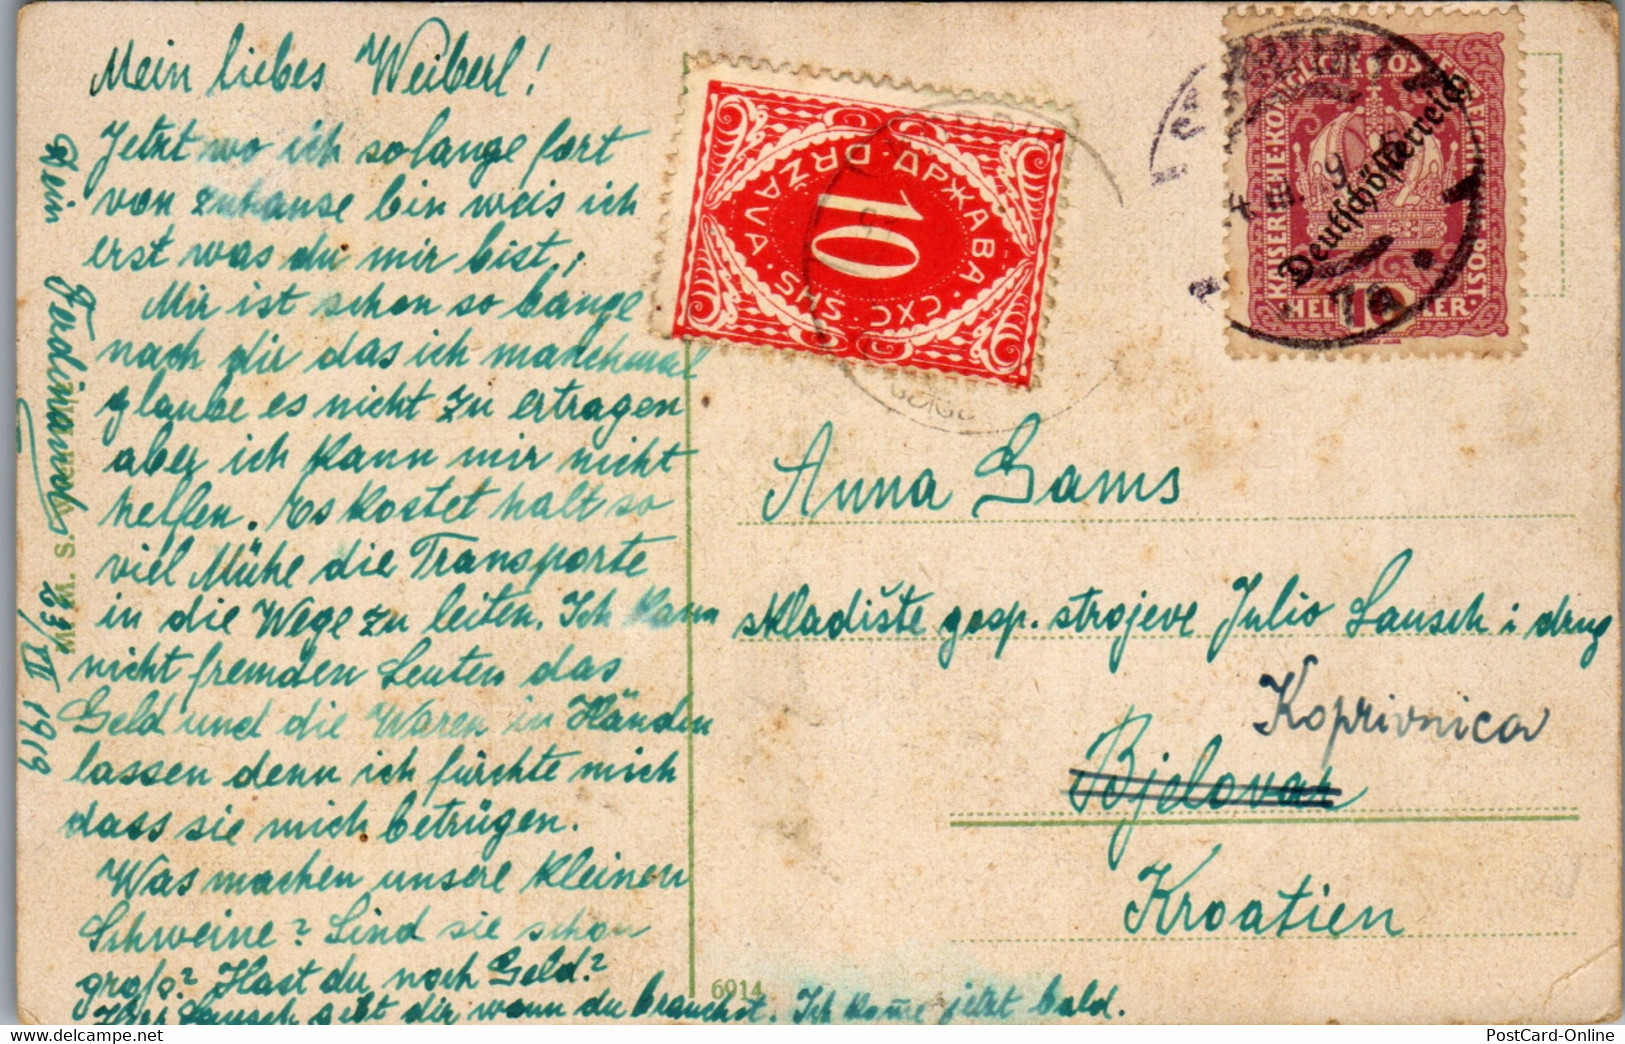 Mein liebes Weiberl!
Jetzt wo ich solange fort
von zuhause bin weis ich
erst was du mir bist,
Mir ist schon so bange
nach dir das ich manchmal
glaube es nicht zu ertragen
aber ich kann mir nicht
helfen. Es kostet halt so
viel Mühe die Transporte
in die Wege zu leiten. Ich kann
nicht fremden Leuten das
Geld und die Waren in Händen
lassen denn ich fürchte mich
dass sie mich betrügen.
Was machen unsere kleinen
Schweine? Sind sie schon
groß? Hast du noch Geld?
Herr Lausch gibt dir wenn du brauchst. Ich kom̄e jetzt bald.
Dein Ferdinand
23/VII 1919
W. M. S.
6914
ДРЖАВА · СХС · SHS · DRŽAVA
10
KAISERLICHE KÖNIGLICHE ÖSTERREICHISCHE POST
Deutschösterreich
10
HELLER
Anna Gams
skladište gosp. strojeve Julio Lausch i drug
Koprivnica
Bjelovar
Kroatien
PostCard-Online